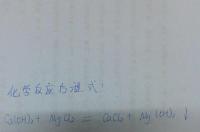 化学反应方程式:
Ca(OH)₂ + MgCl₂ = CaCl₂ + Mg(OH)₂ ↓